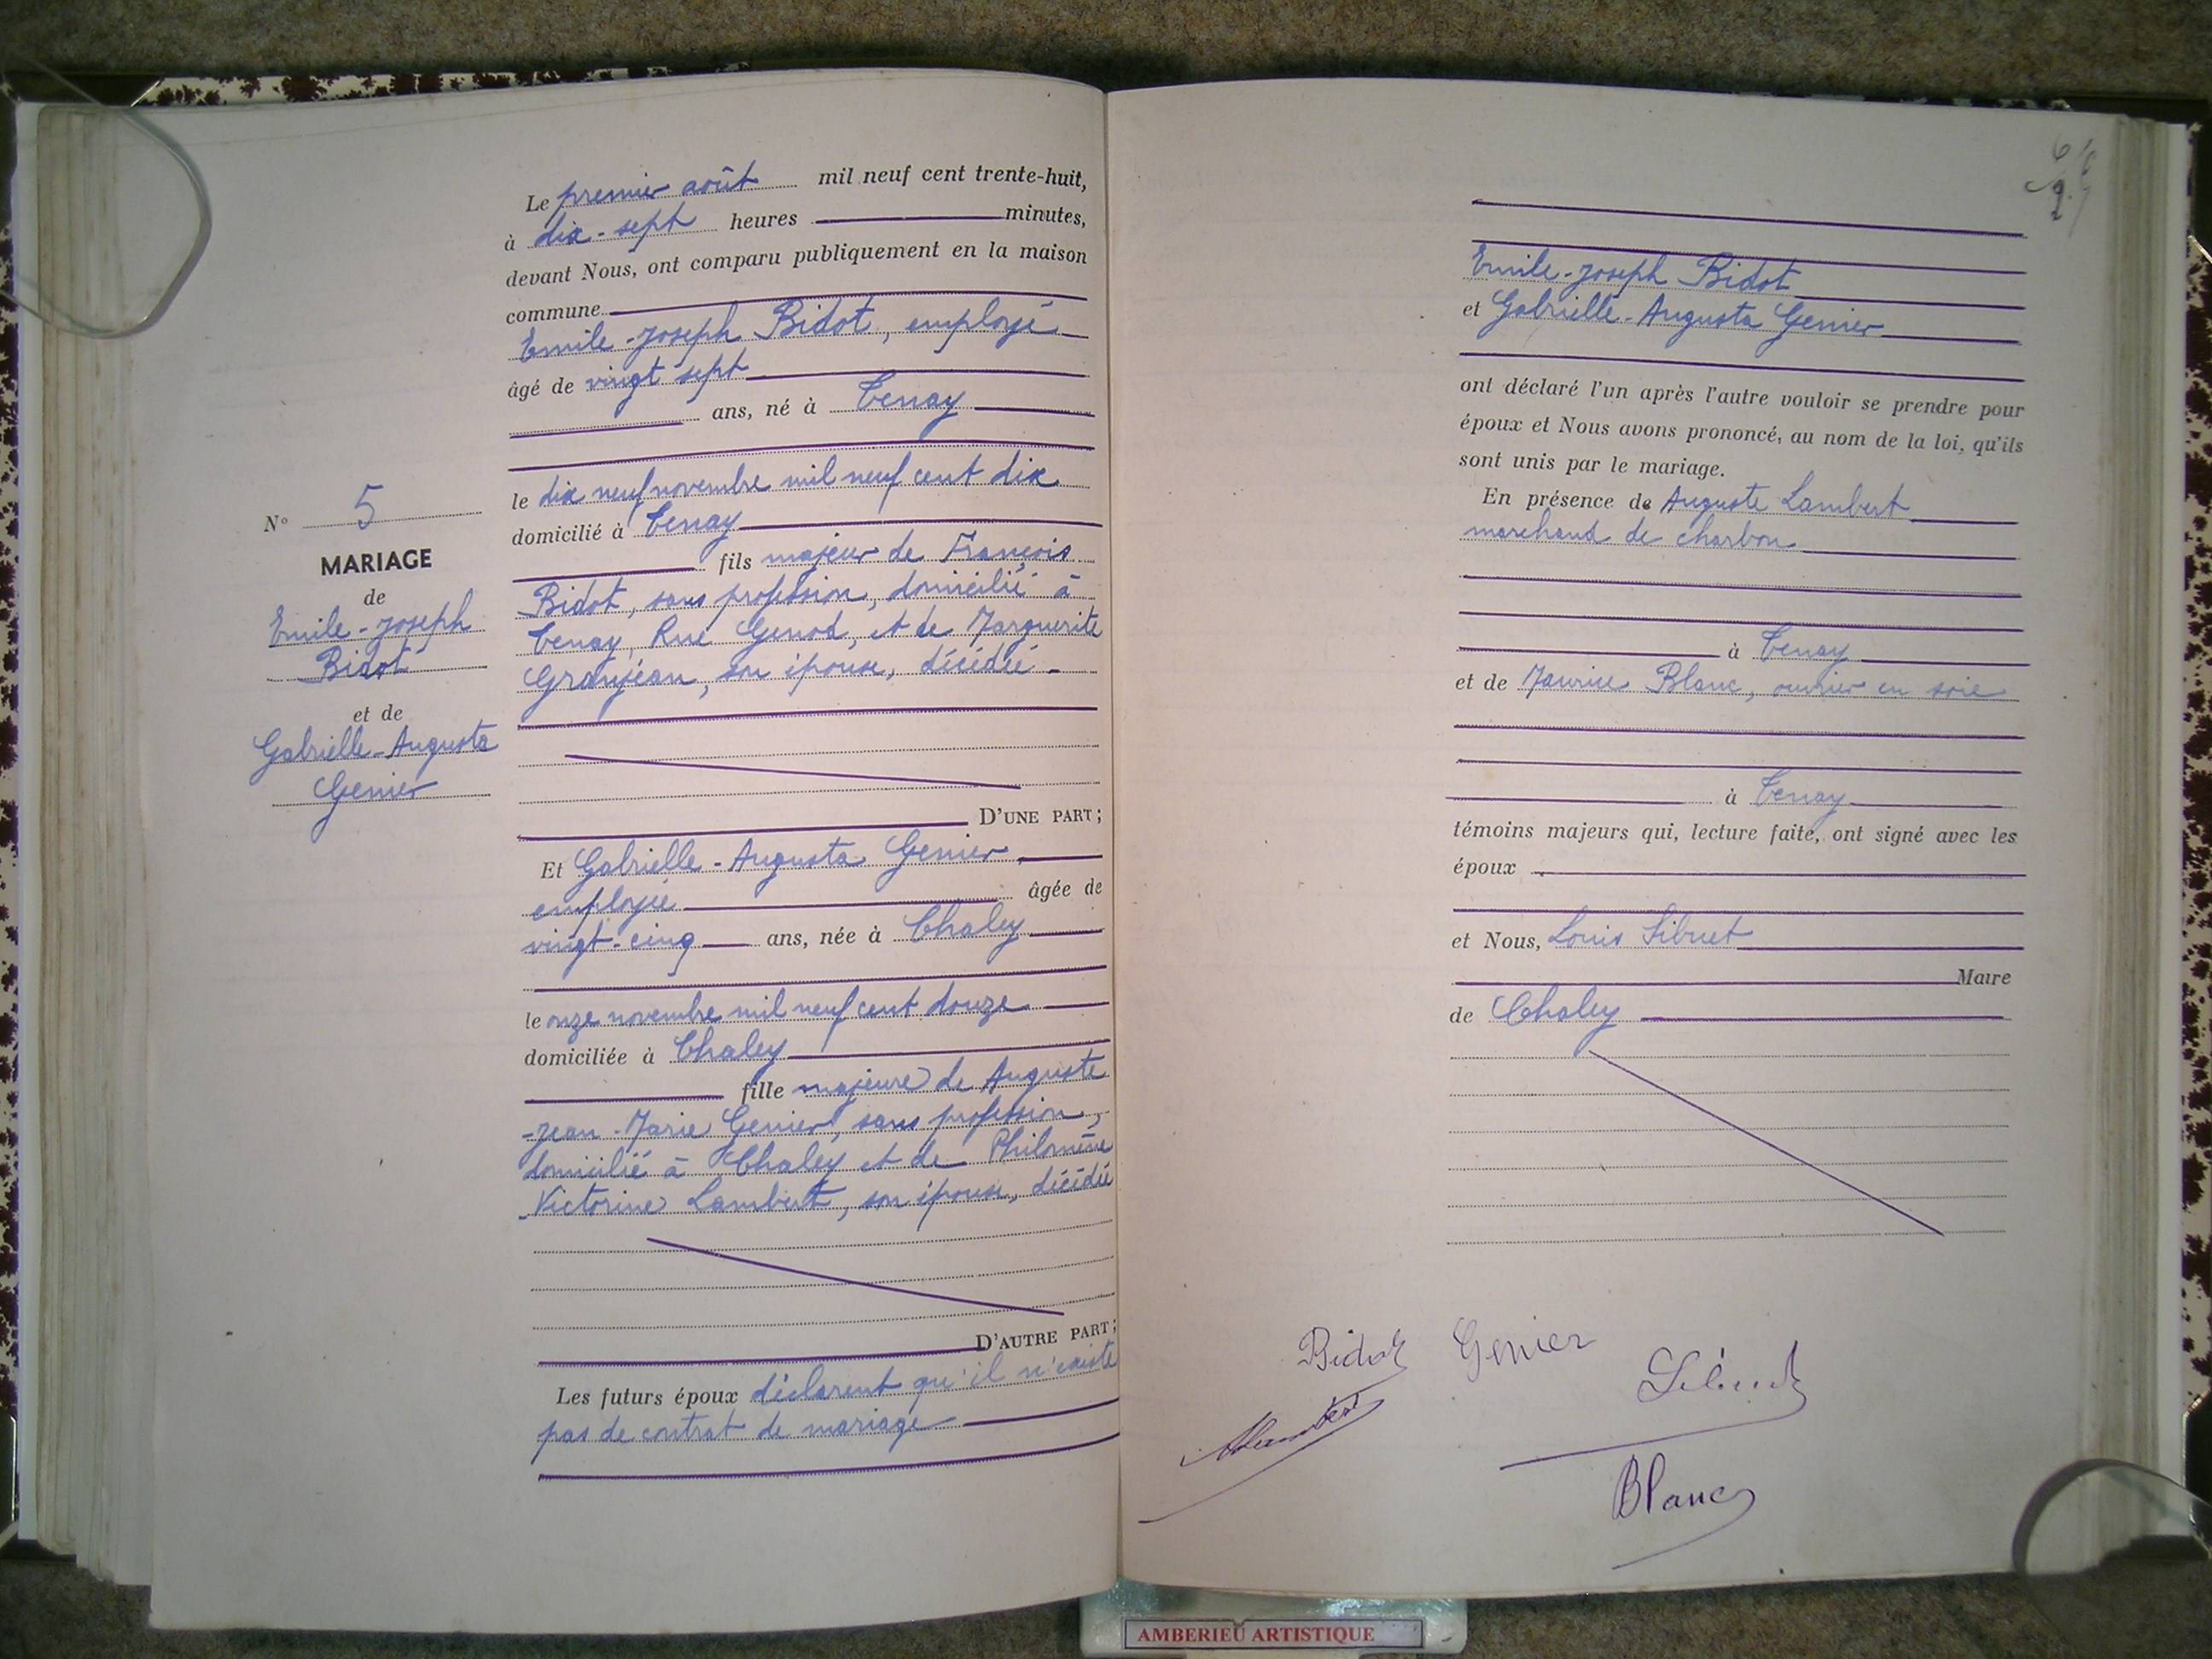 Le premier août mil neuf cent trente-huit,
à dix-sept heures minutes,
devant Nous, ont comparu publiquement en la maison
commune
Emile-Joseph Bidot, employé
âgé de vingt sept
ans, né à Tenay
le dix neuf novembre mil neuf cent dix
domicilié à Tenay
fils majeur de François
Bidot, sans profession, domicilié à
Tenay, Rue Genod, et de Marguerite
Granjean, son épouse, décédée -
D'UNE PART;
Et Gabrielle-Augusta Genier
employée âgée de
vingt-cinq ans, née à Chaley
le onze novembre mil neuf cent douze
domiciliée à Chaley
fille majeure de Auguste
-Jean-Marie Genier, sans profession,
domicilié à Chaley et de Philomène
Victorine Lambert, son épouse, décédée
D'AUTRE PART;
Les futurs époux déclarent qu'il n'existe
pas de contrat de mariage
N° 5
MARIAGE
de
Emile-Joseph
Bidot
et de
Gabrielle-Augusta
Genier
Emile-Joseph Bidot
et Gabrielle-Augusta Genier
ont déclaré l'un après l'autre vouloir se prendre pour
époux et Nous avons prononcé, au nom de la loi, qu'ils
sont unis par le mariage.
En présence de Auguste Lambert
marchand de charbon
à Tenay
et de Maurice Blanc, ouvrier en soie
à Tenay
témoins majeurs qui, lecture faite, ont signé avec les
époux
et Nous, Louis Sibuet
Maire
de Chaley
Bidot Genier
Sibuet
Blanc
AMBERIEU ARTISTIQUE